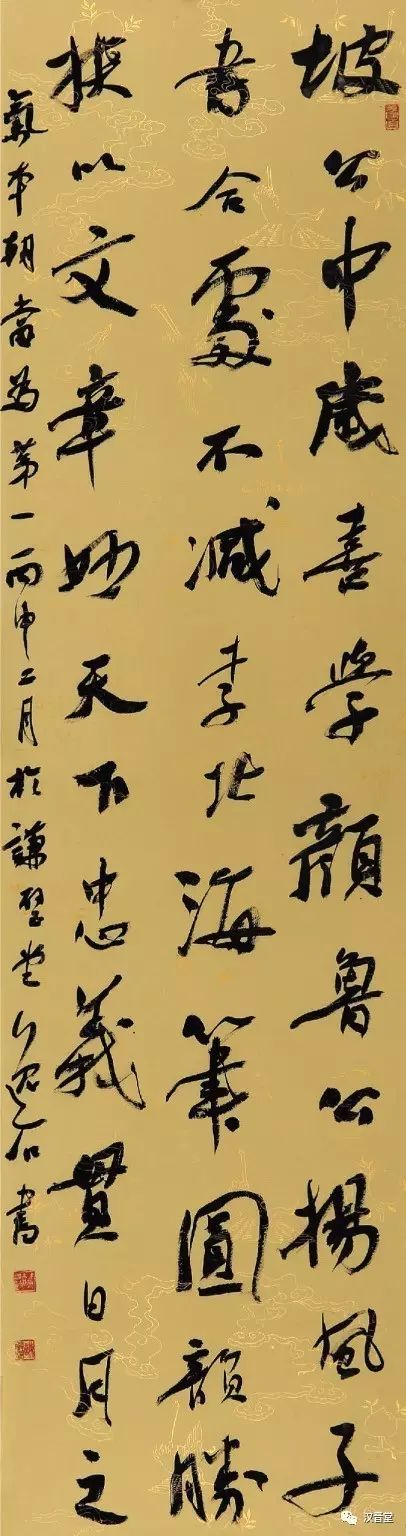 坡公中歲喜學顏魯公揚風子
書合處不減李北海筆圓韻勝
挾以文章妙天下忠義貫日月之
氣本朝當為第一丙申二月於謙堂石書